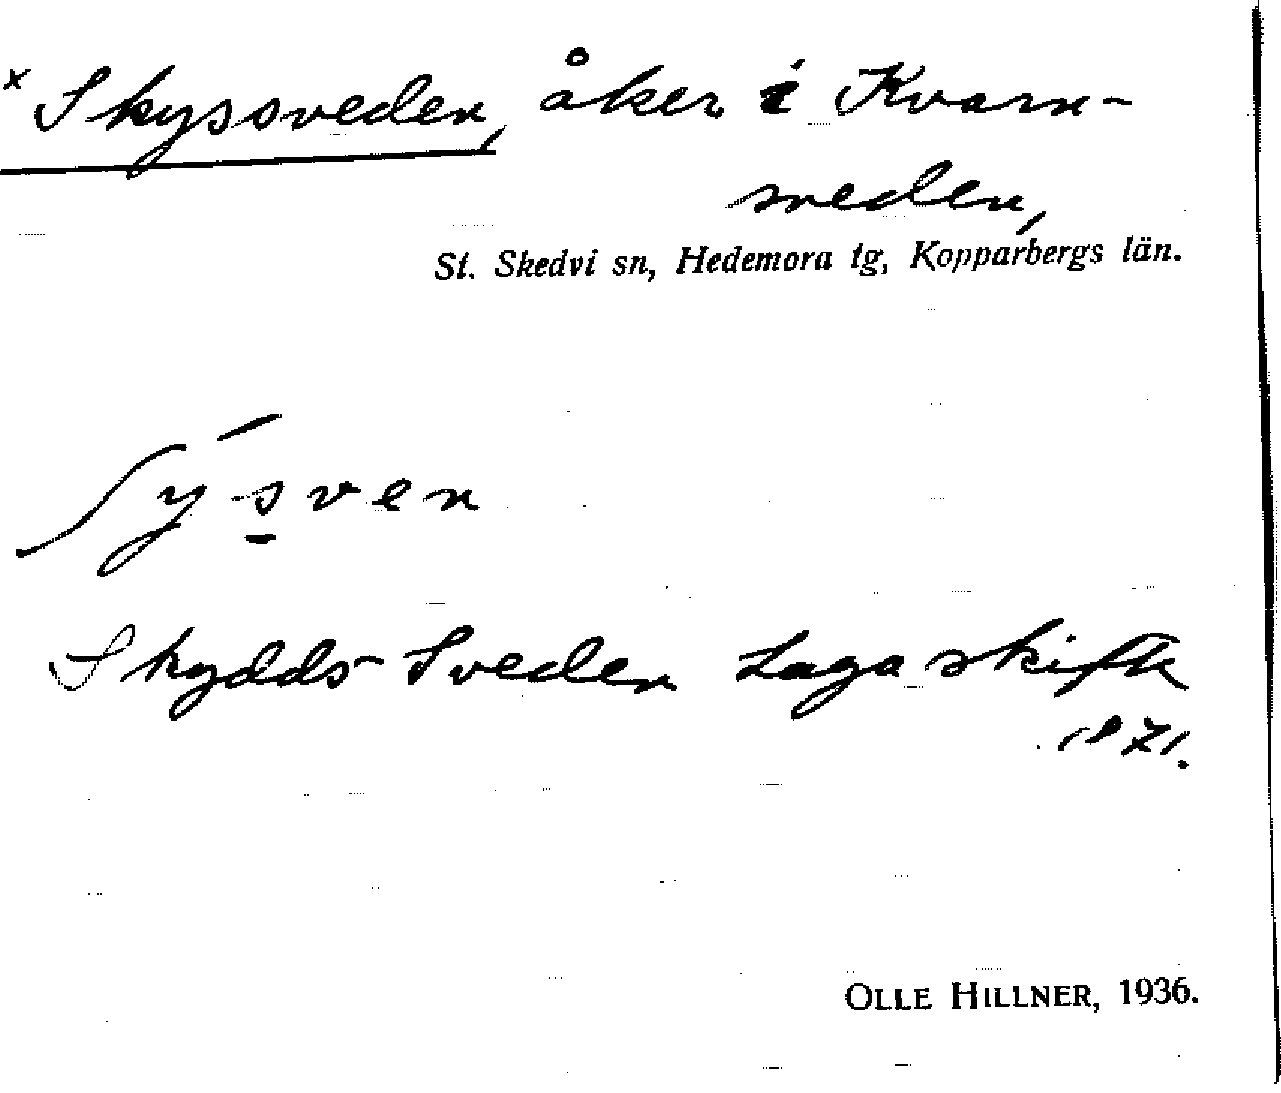 × Skyssveden, åker i Kvarn-
sveden,
St. Skedvi sn, Hedemora tg, Kopparbergs län.
ʃýs̱ven
Skydds-Sveden Laga skifte
1871.
OLLE HILLNER, 1936.